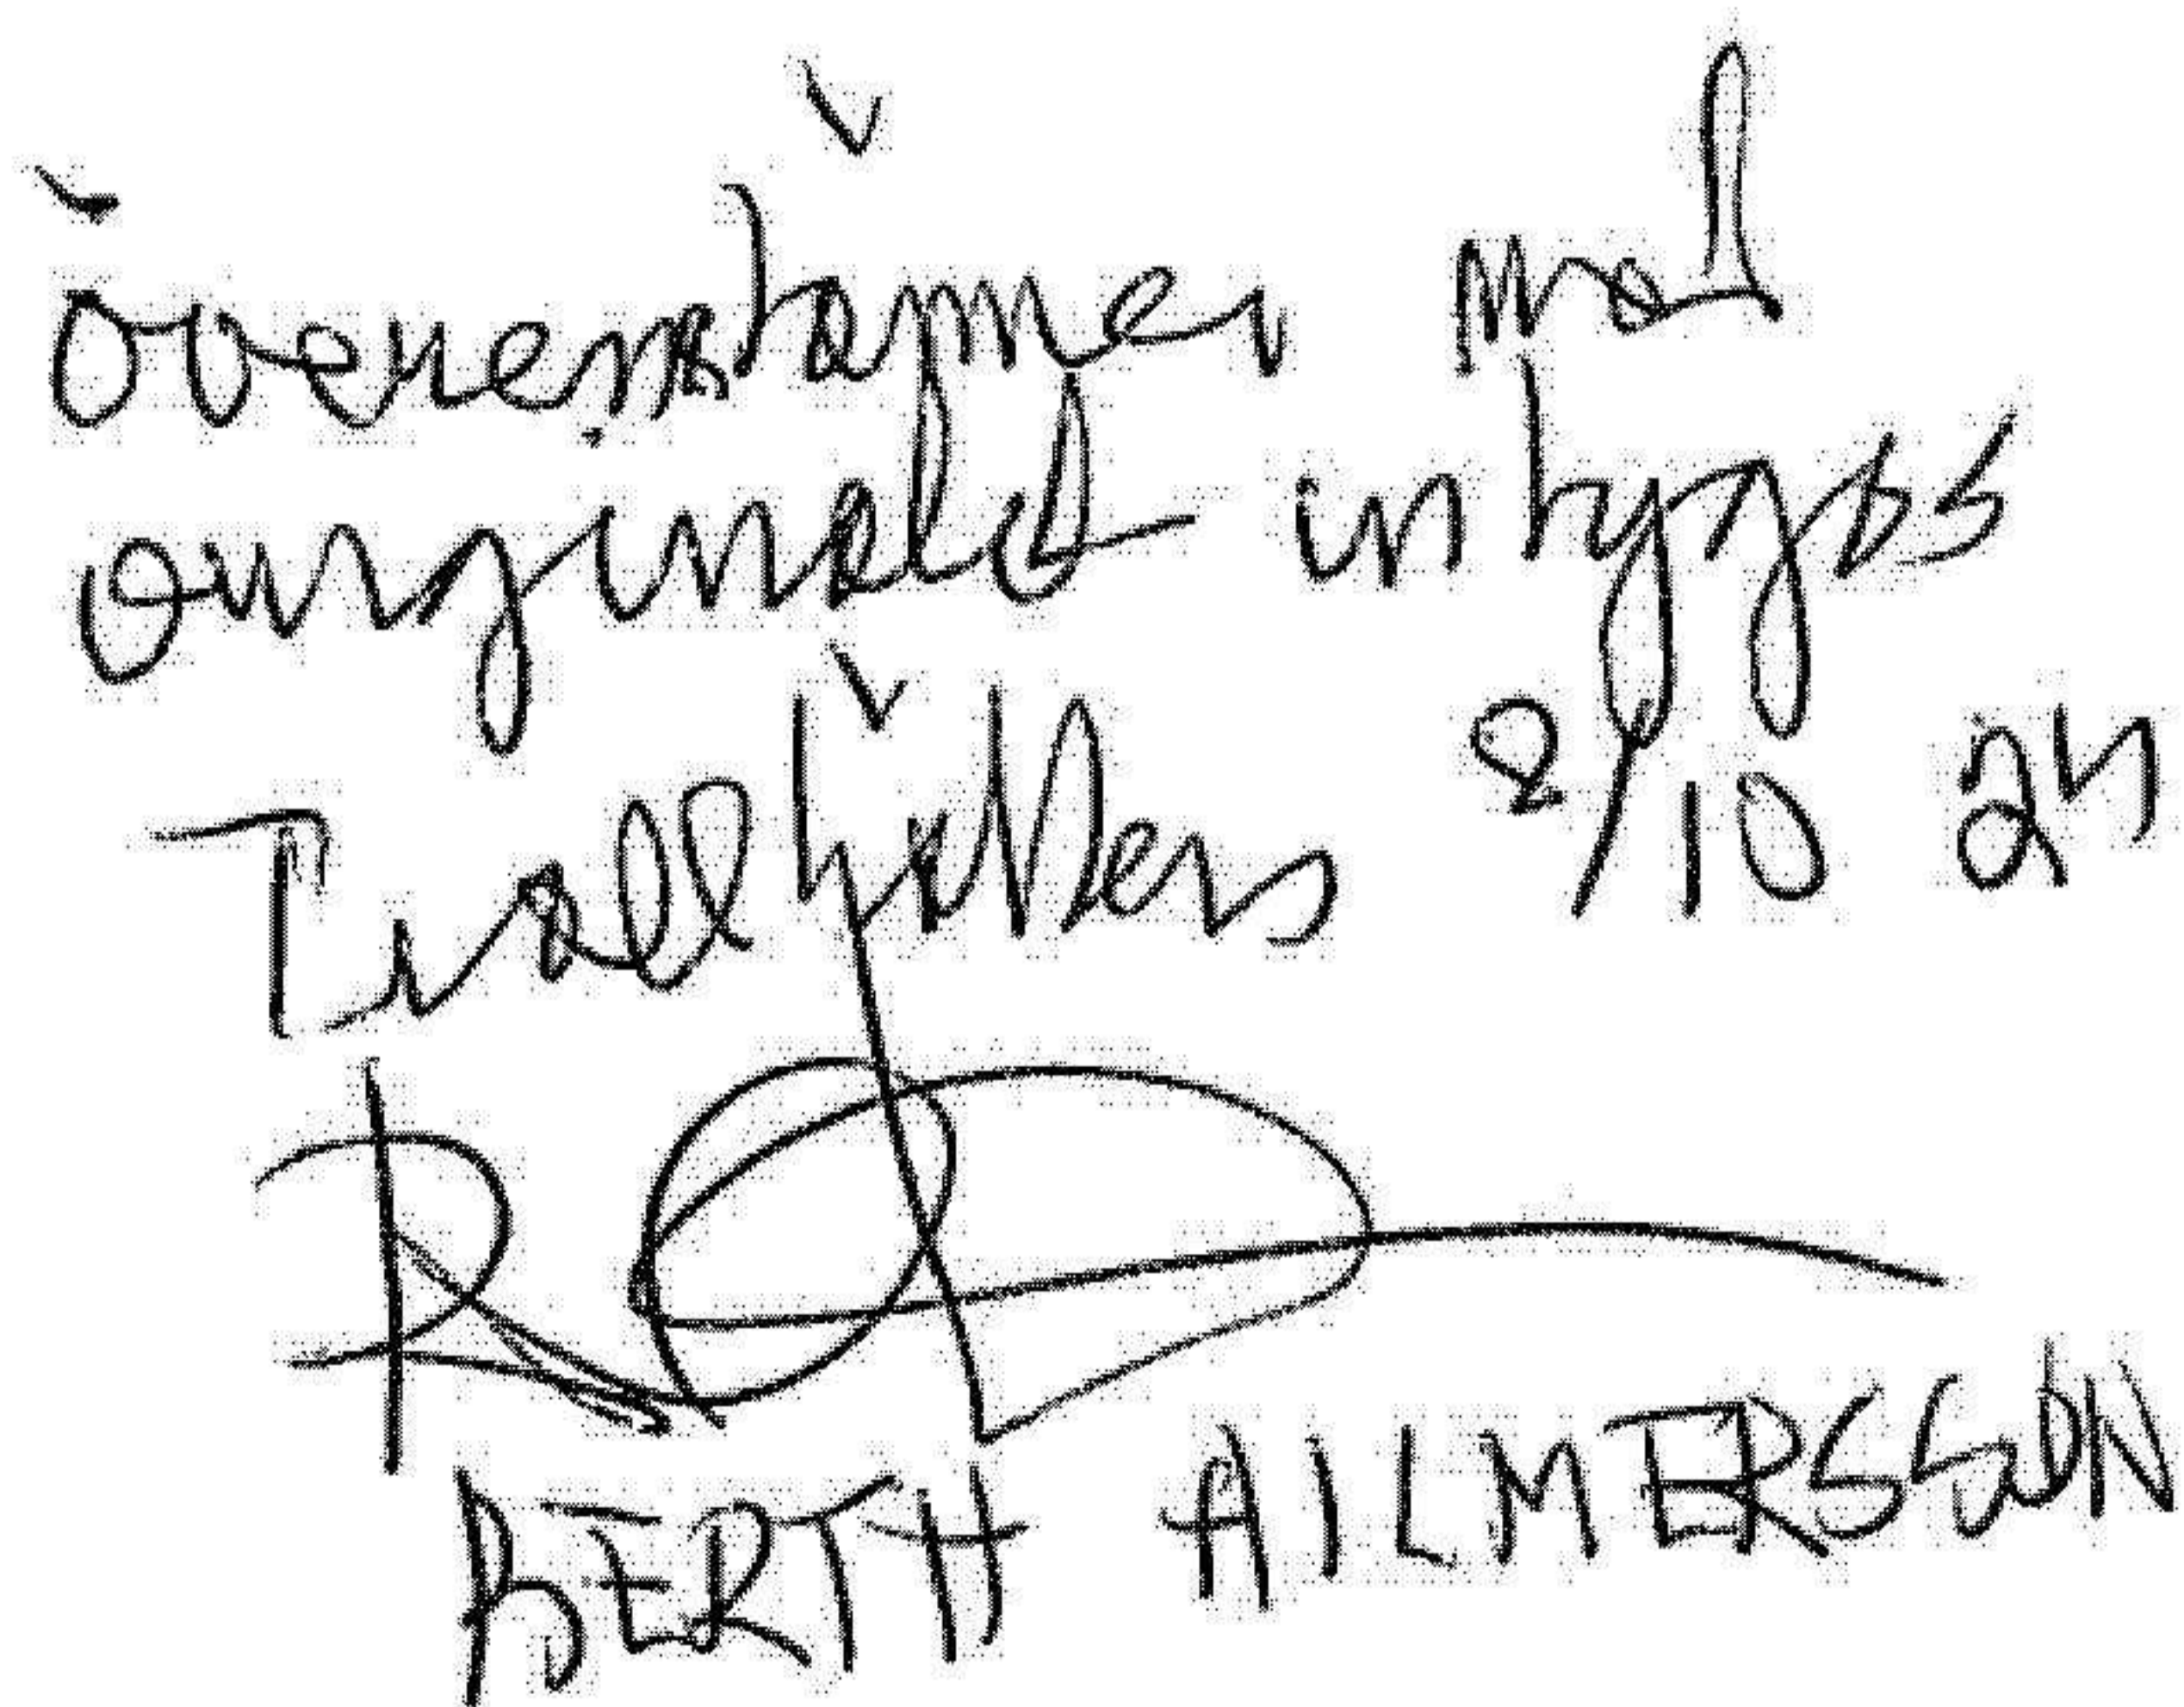 överenstämmer med
originalet intygas
Trollhättan 8/10 24
BERTH HILMERSSON